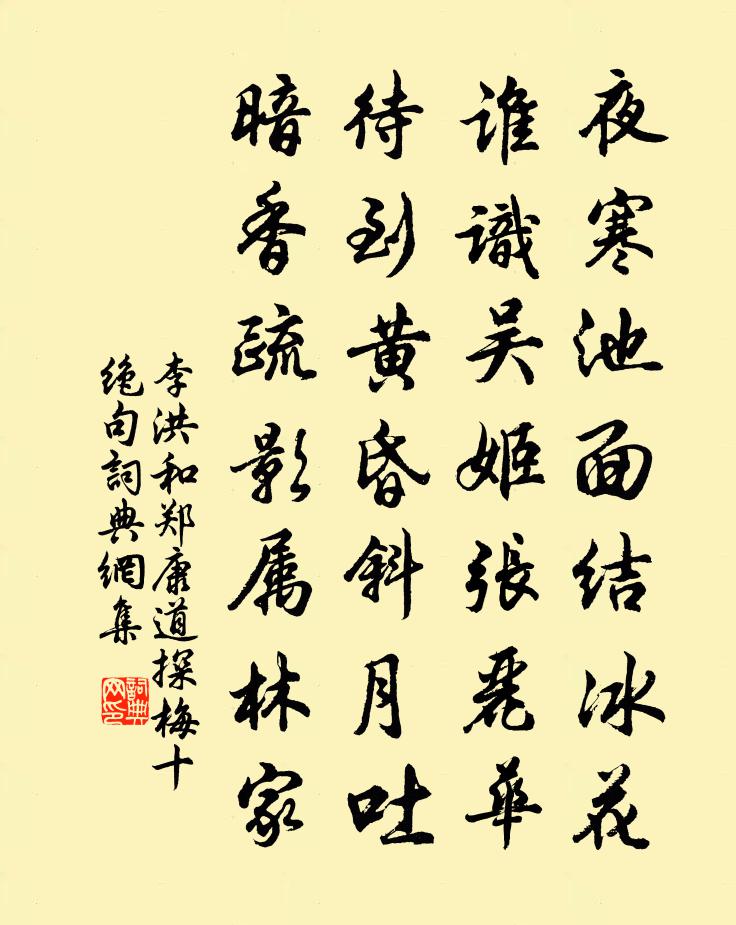 夜寒池面结冰花
谁識吴姬張麗華
待到黄昏斜月吐
暗香疏影属林家
李洪和郑康道探梅十
绝句詞典網集
詞典網印